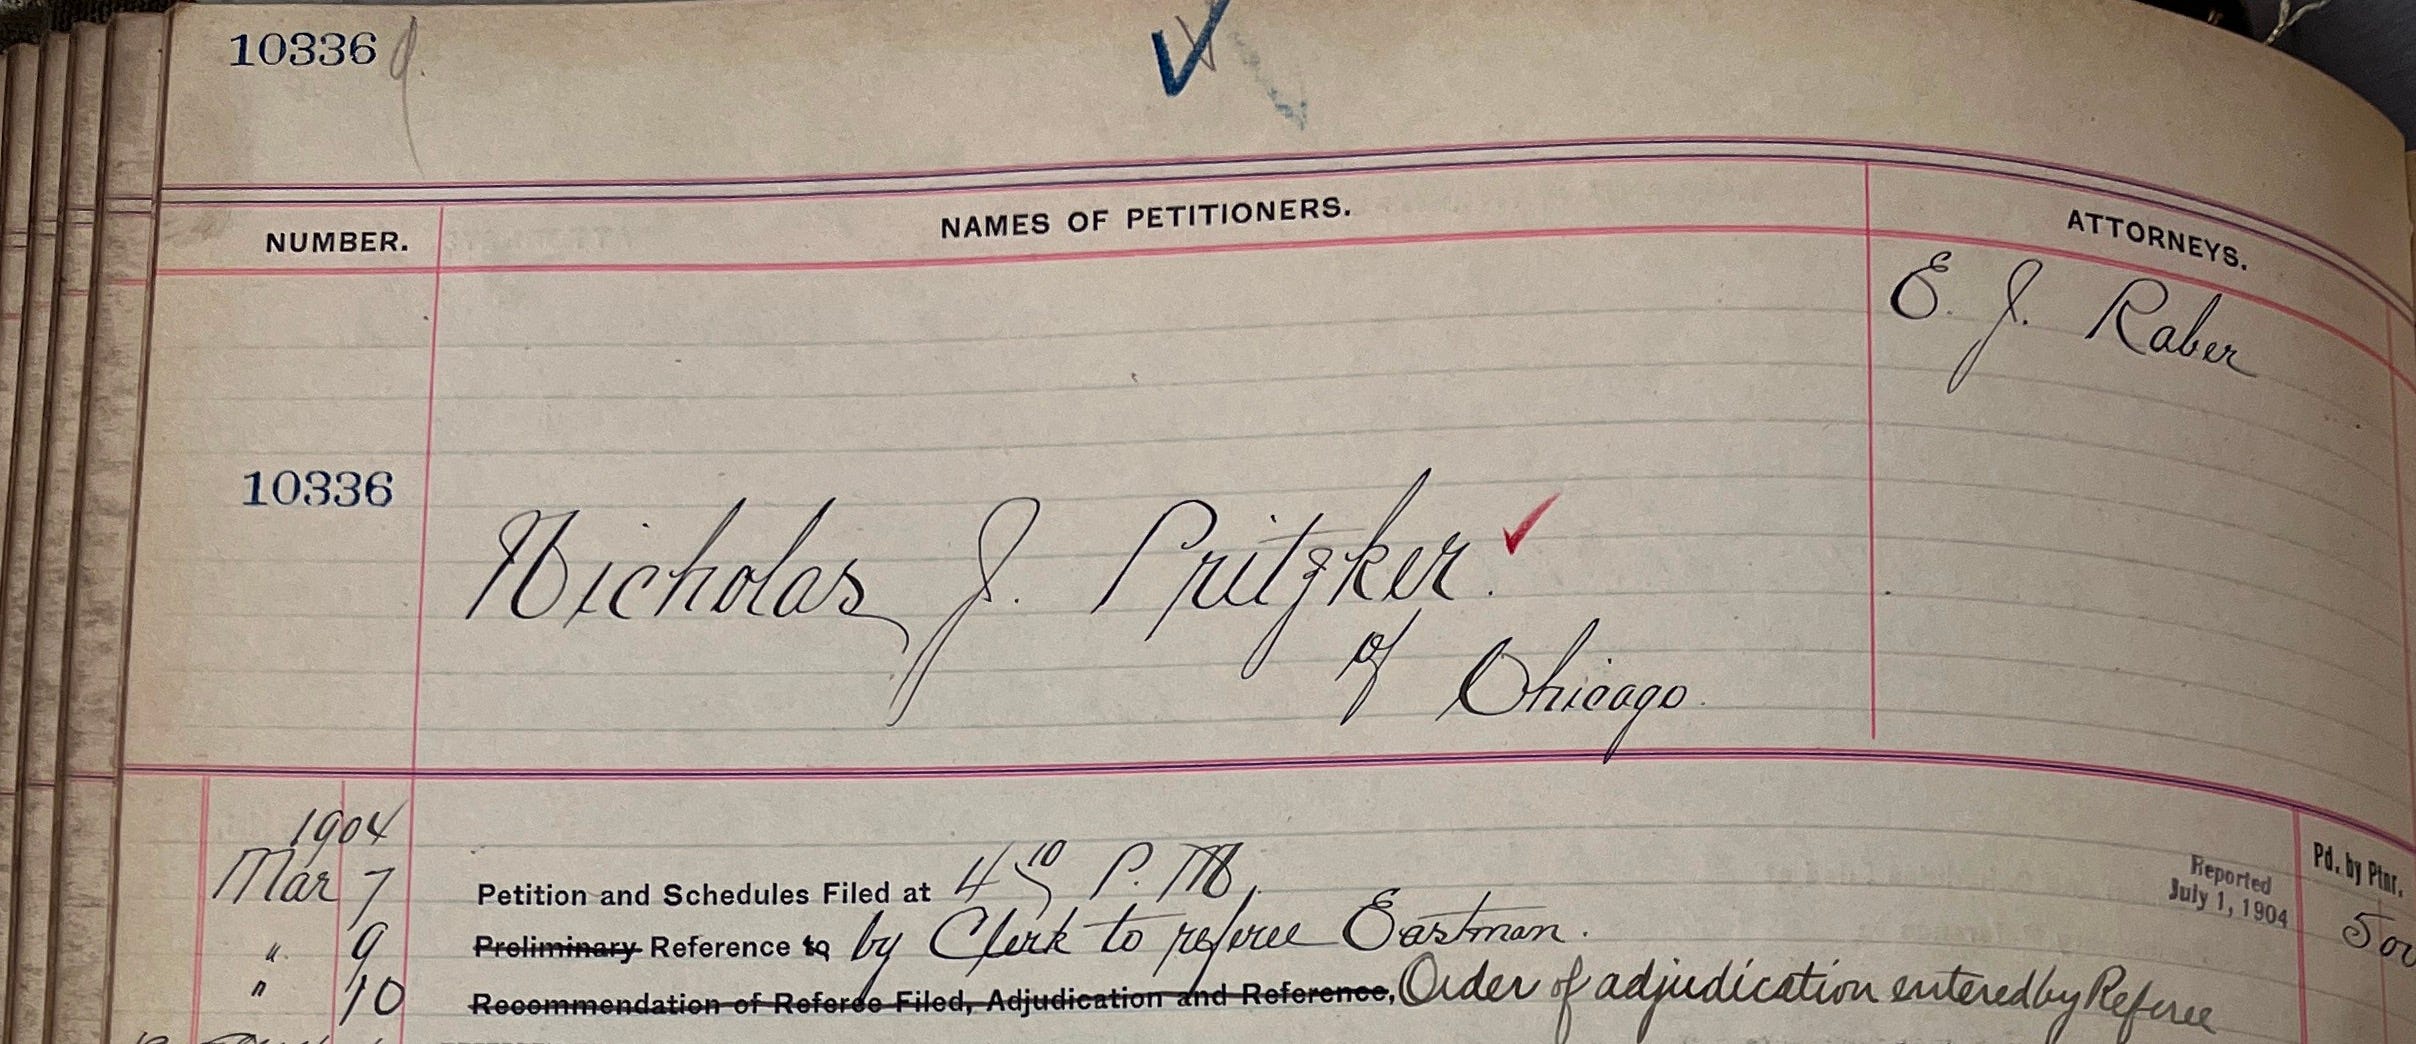 10336
NUMBER. NAMES OF PETITIONERS. ATTORNEYS.
E. J. Raber
10336
Nicholas J. Pritzker.
of Chicago.
1904
Mar 7 Petition and Schedules Filed at 4 10 P. M. Reported July 1, 1904 Pd. by Ptnr.
" 9 Preliminary Reference to by Clerk to referee Eastman. 500
" 10 Recommendation of Referee Filed, Adjudication and Reference, Order of adjudication entered by Referee